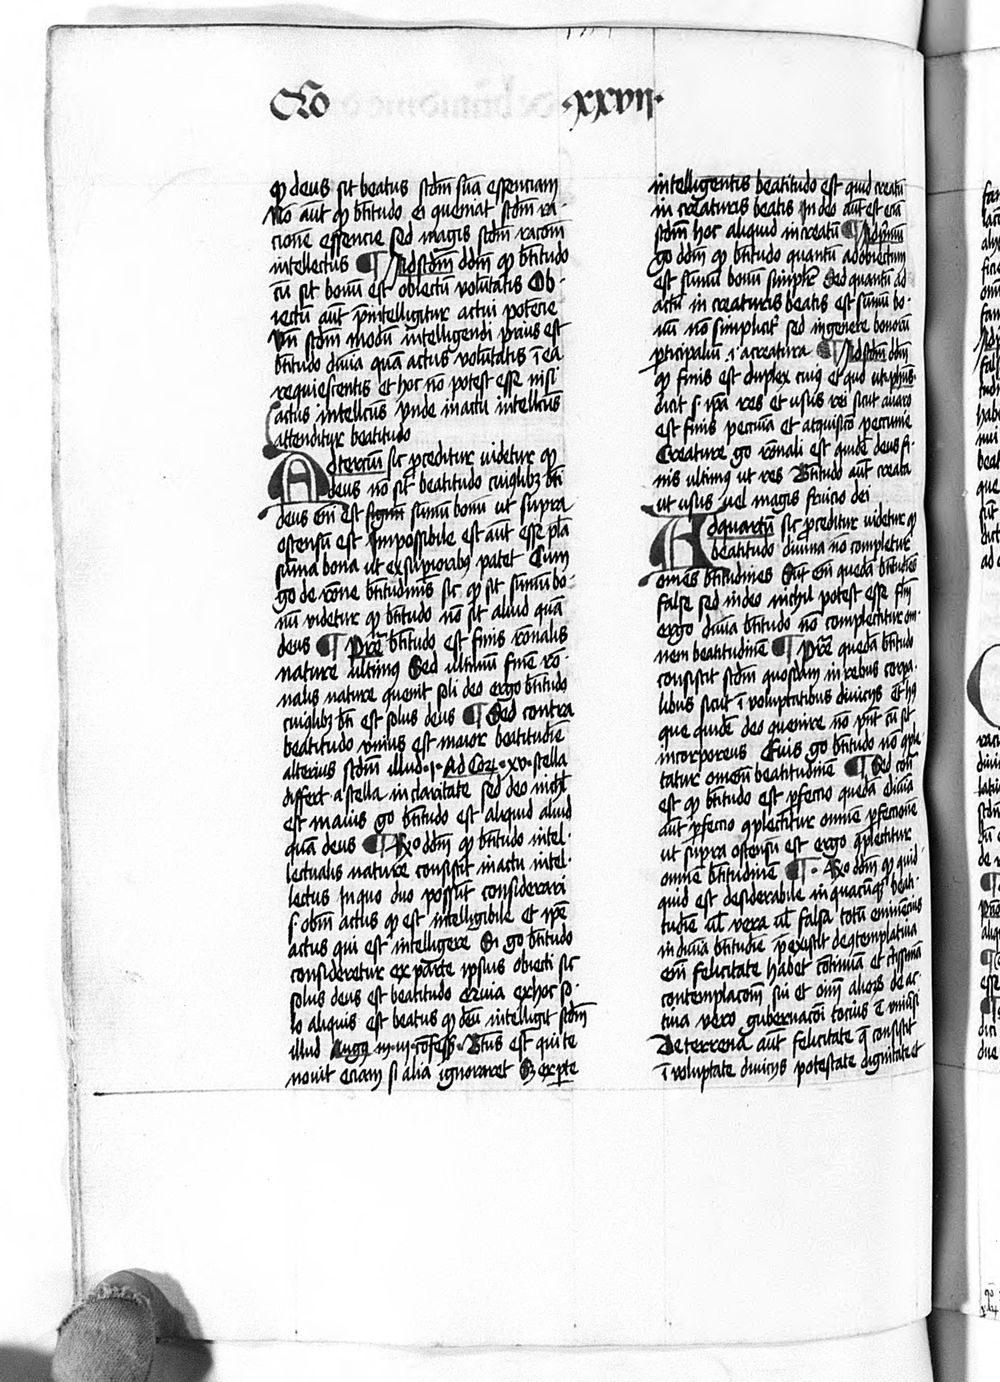 Qo
·xxvii·
qꝫ deus sit beatus scdm suā essenciam
Nō aūt qꝫ btītudo ei queniat scdm ra-
cionē essencie sed magis scdm racōm
intellectus ¶ Ad scdm ddm qꝫ btītudo
cū sit bonū est obiectū volūtatis Ob-
iectū aūt p̄intelligitur actui potēcie
Vn scdm modū intelligendi prius est
btītudo diuīa quā actus volūtatis ī ea
requiescentis et hoc nō potest esse nisi
actus intellcūs vnde inactu intellcūs
attenditur beatitudo
Ad terciū sic proceditur videtur qꝫ
deus nō sit beatitudo cuiuslibꝫ btī
deus em̄ est sūmū bonū ut supra
ostensū est Impossibile est aūt esse pl̄a
sūma bona ut ex supioribꝫ patet Cum
go de rōne btītudinis sic qꝫ sit sūmū bo-
nū videtur qꝫ btītudo nō sit aliud quā
deus ¶ Pret̄ btītudo est finis rōnalis
nature ultimꝰ Sed ultimū finē rō-
nalis nature quenit soli deo ergo btītudo
cuiuslibꝫ btī est solus deus ¶ Sed contra
beatitudo vnius est maior beatitudiē
alterius scdm illud ·i· Ad Cor̄ ·xv· stella
differt a stella in claritate sed deo nichl
est maius go btītudo est aliquid aliud
quā deus ¶ Rō ddm qꝫ btītudo intel-
lectualis nature consistit inactu intel-
lectus Inquo duo possūt considerari
s· obm actus qꝫ est intelligibile et ipē
actus qui est intelligere Si go btītudo
consideretur ex parte ipsius obiecti sic
solus deus est beatitudo Q̄uia ex hoc so-
lo aliquis est beatus qꝫ deū intelligit scdm
illud Augꝰ in ·v· cōfess· Btūs est qui te
nouit eciam si alia ignoraret Sꝫ ex pte
intelligentis beatitudo est quid creatū
in creaturis beatis In deo aūt est eciā
scdm hoc aliquid increatū ¶ Ad primū
go ddm qꝫ btītudo quantū ad obiectum
est sūmū bonū simplr̄ Sed quantū ad
actū in creaturis beatis est sūmū bo-
nū nō simplicitr̄ sed in genere bonorū
pticipabiliū a creatura ¶ Ad scdm ddm
qꝫ finis est duplex cuiꝰ et quo ut phūs
dicit s· ipa res et usus rei sicut auaro
est finis pecunia et acquisico pecunie
Creature go rōnali est quidē deus fi-
nis ultimꝰ ut res Btītudo aūt creata
ut usus vel magis fruicio rei
Ad quartū sic proceditur videtur qꝫ
beatitudo diuina nō completur
omēs btītudines Sūt em̄ quedā btītudies
false sed in deo nichil potest esse flm
ergo diuīa btītudo nō complectitur om-
nem beatitudinē ¶ Pret̄ quedā btītudo
consistit scdm quosdam in rebus corpa-
libus sicut ī voluptatibus diuicijs et hꝰ
que quidē deo quenire nō pnt cū sit
incorporeus Eius go btītudo nō qple-
tatur omnem beatitudinē ¶ Sed contᵃ
est qꝫ btītudo est pfectio quedā diuina
aūt pfectio qplectitur omnē pfectionē
ut supra ostensū est ergo qplectitur
omnē btītudinē ¶ Rō ddm qꝫ quid-
quid est desiderabile in quacūqꝫ beati-
tudie ul vera ul falsa totū eminencius
in diuīa btītudie p̄existit de qtemplatiua
em̄ felicitate habet cōtinuā et ctissimā
contemplacōm sui et oīm alioꝝ de ac-
tiua vero gubernacōm tocius vniūsi
De terrena aūt felicitate q̄ consistit
ī voluptate diuicijs potestate dignitate et